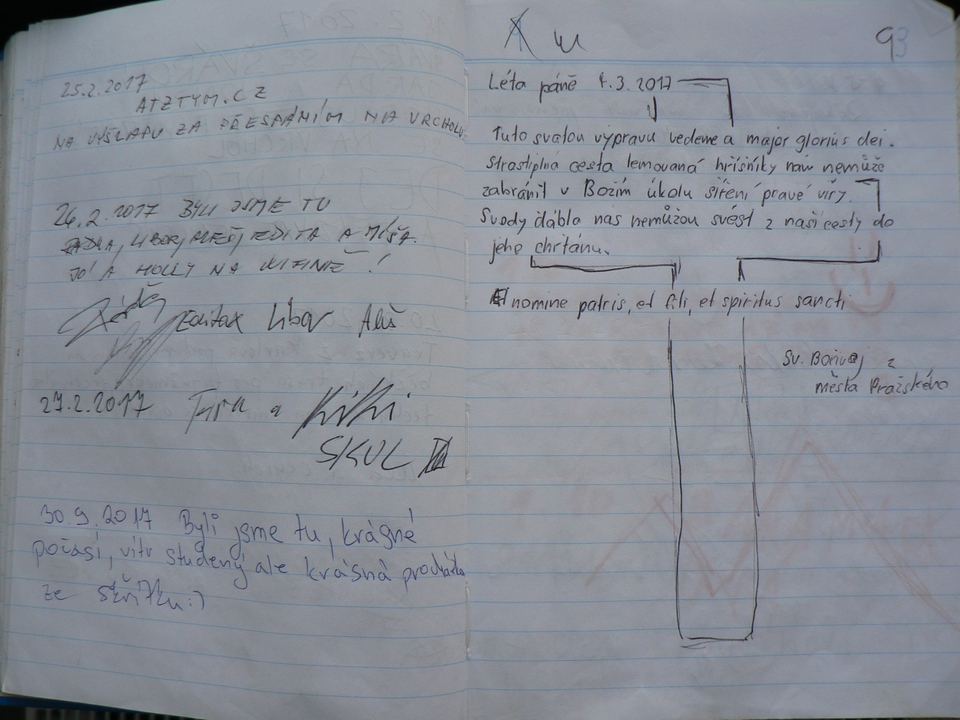 25.2.2017
ATZTYM.CZ
NA VÝŠLAPU ZA PŘESPÁNÍM NA VRCHOLU
26.2.2017 BYLI JSME TU
LIBOR, ALEŠ, EDITA A MÍŠA.
JO A HOLLY NA !
Editax Libor Aleš
27.2.2017 a Kiki
SKUL
30.9.2017 Byli jsme tu, krásné
počasí, vítr studený ale krásná procházka
ze skřítku:)
93
Léta páně 4.3.2017
Tuto svatou výpravu vedeme a major glorius dei.
Strastiplná cesta lemovaná hříšníky nám nemůže
zabránit v Božím úkolu šíření pravé víry.
Svody ďábla nás nemůžou svést z naší cesty do
jeho chřtánu.
nomine patris, et fili, et spiritus sancti
Sv. Bořivoj z
města Pražského